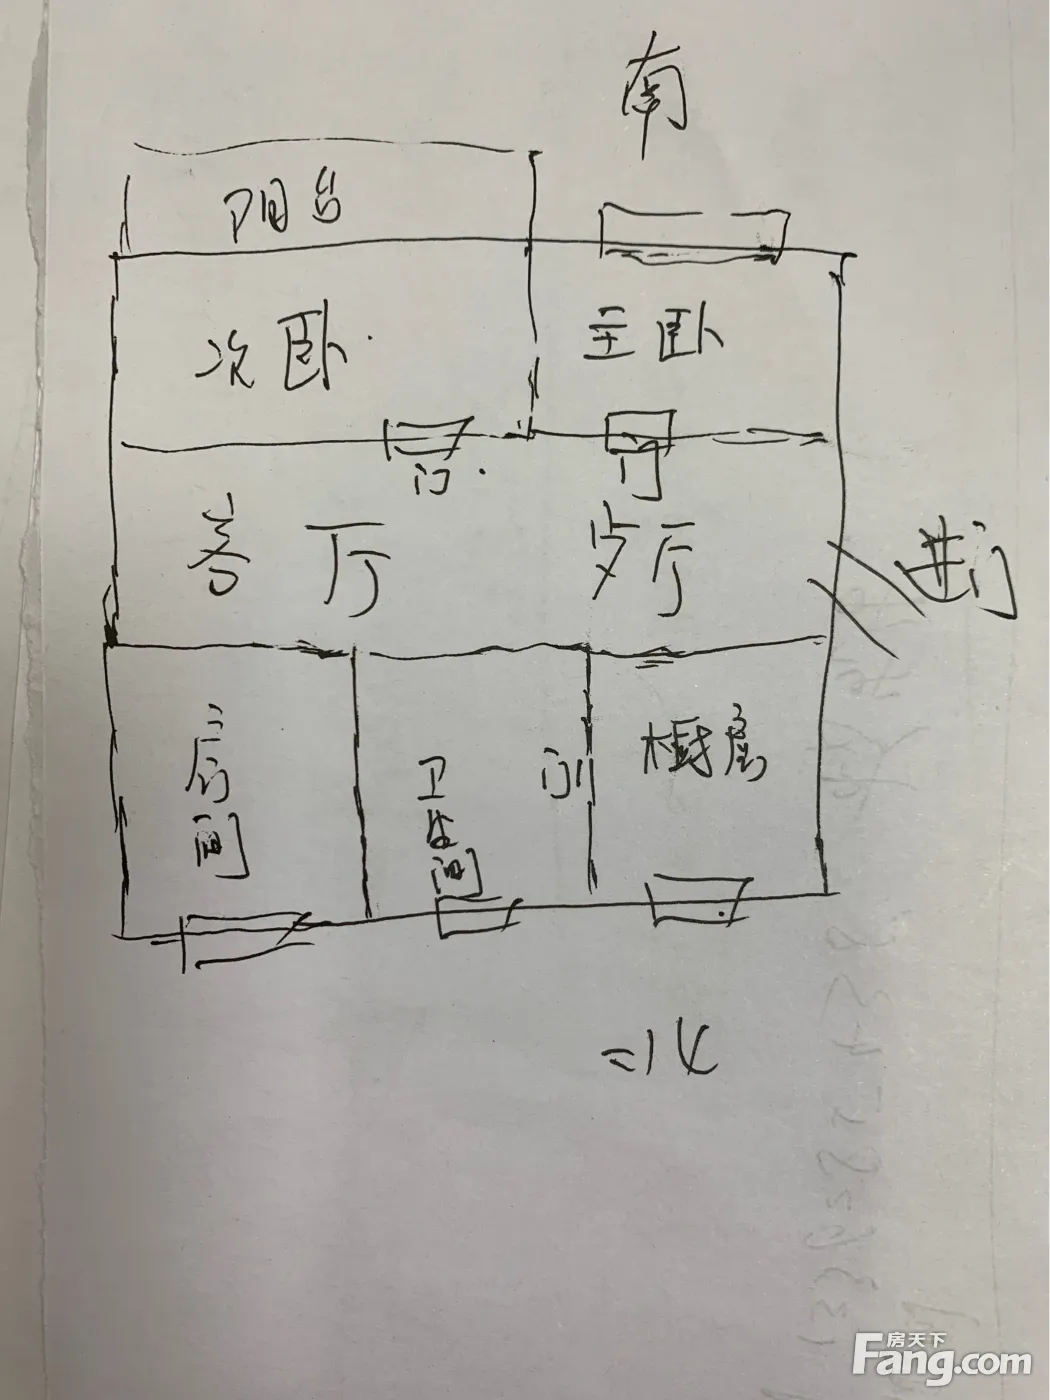 南
阳台
次卧
主卧
门
门
客厅
歺厅
进门
房间
卫生间
门
橱房
=14
房天下
Fang.com